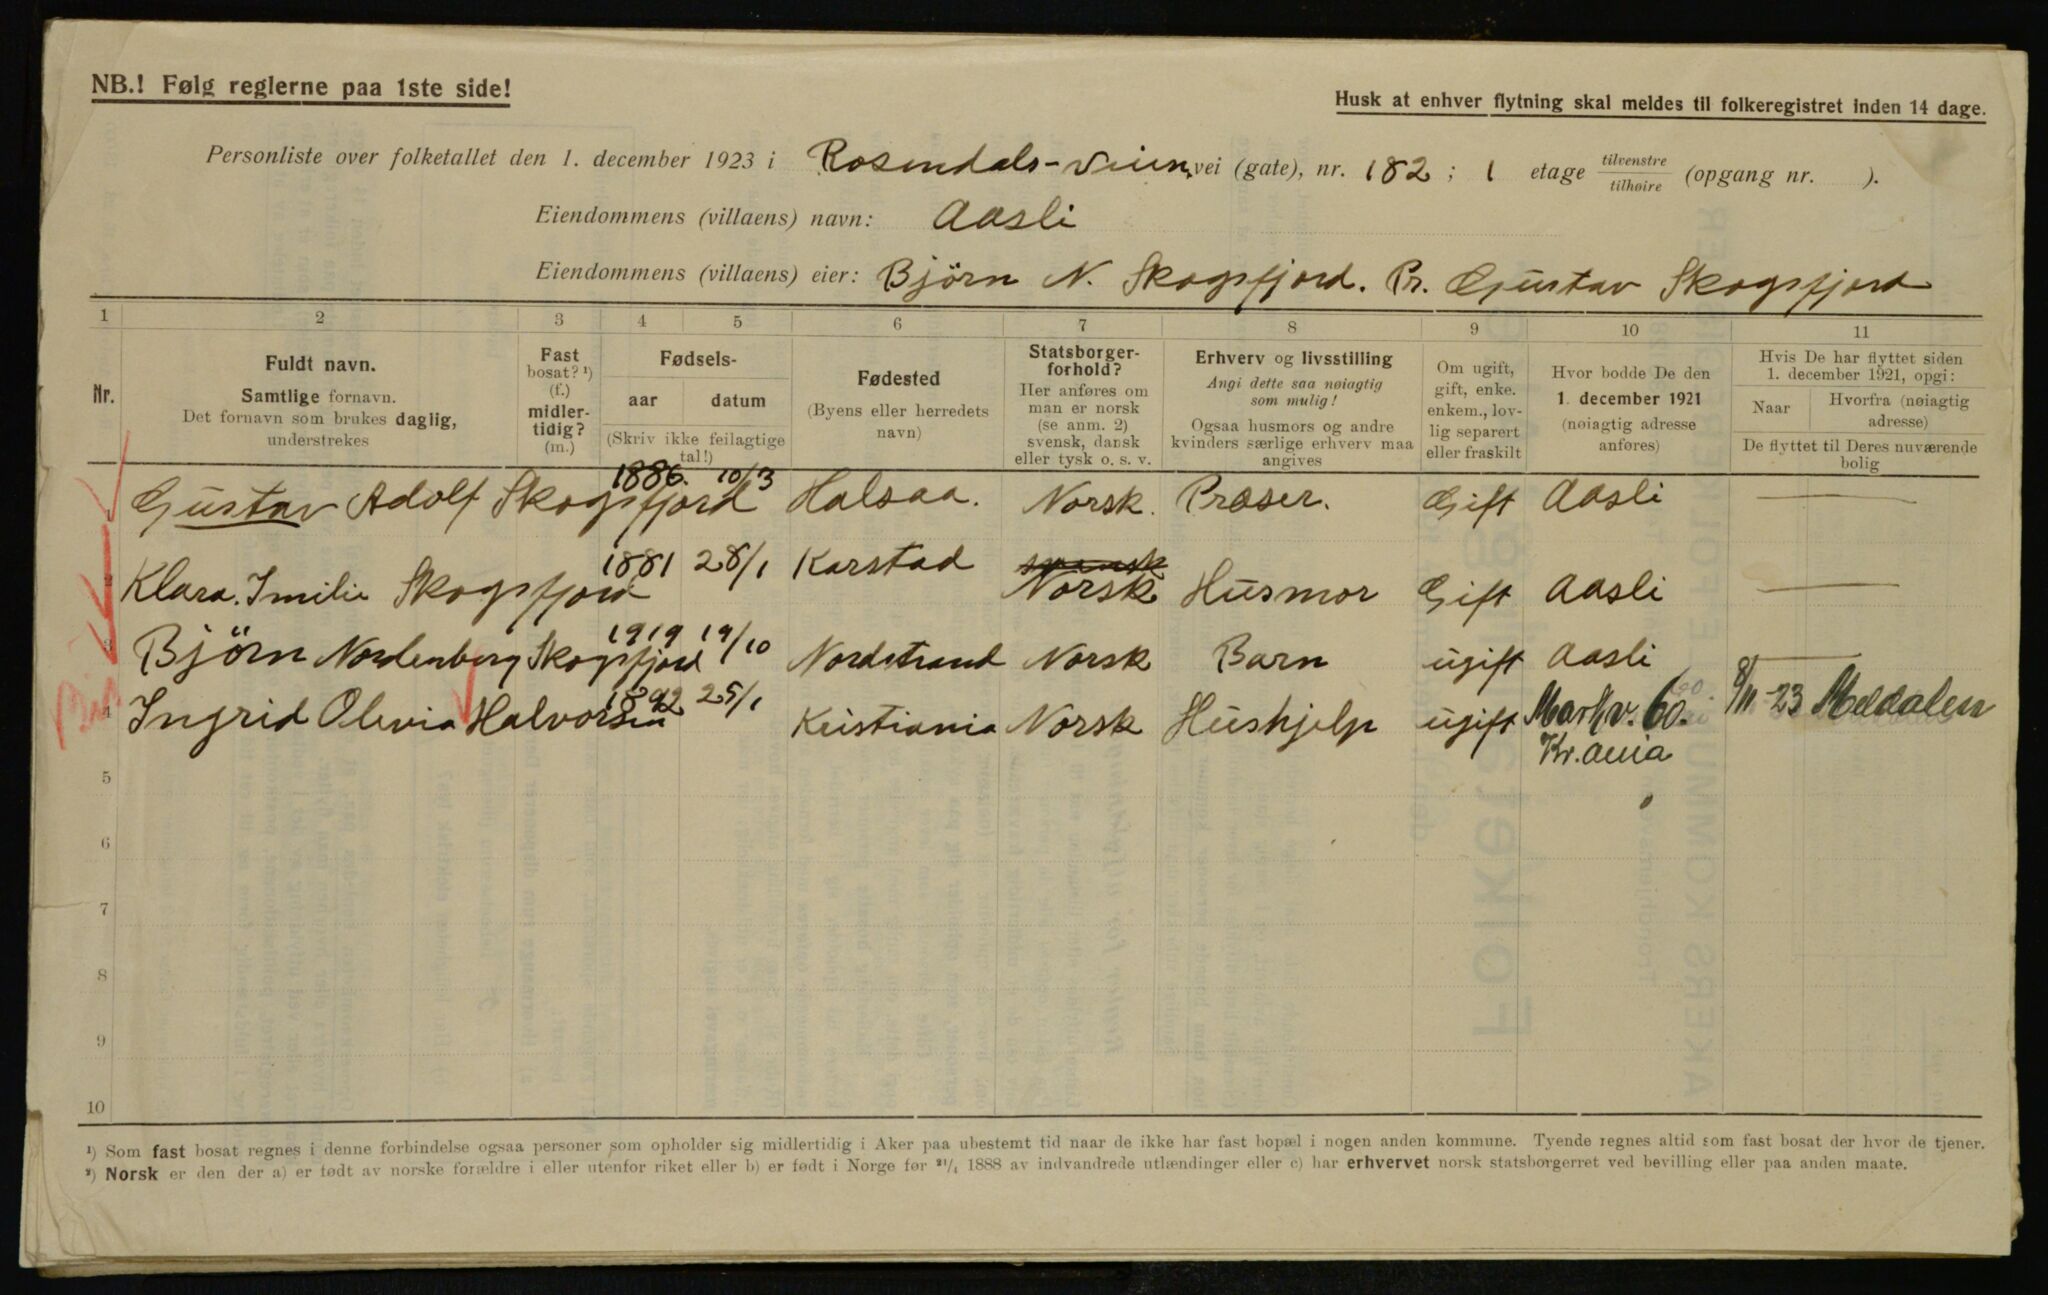 NB.! Følg reglerne paa 1ste side!
Husk at enhver flytning skal meldes til folkeregistret inden 14 dage.
Personliste over folketallet den 1. december 1923 i Rosendals-veien vei (gate), nr. 182; 1 etage tilvenstre/tilhøire (opgang nr. ).
Eiendommens (villaens) navn: Aasli
Eiendommens (villaens) eier: Björn N. Skogsfjord. Pr. Gustav Skogsfjord
1 2 3 4 5 6 7 8 9 10 11
Nr.
Fuldt navn.
Samtlige fornavn.
Det fornavn som brukes daglig,
understrekes
Fast
bosat? ¹)
(f.)
midler-
tidig?
(m.)
Fødsels-
aar datum
(Skriv ikke feilagtige
tal!)
Fødested
(Byens eller herredets
navn)
Statsborger-
forhold?
Her anføres om
man er norsk
(se anm. 2)
svensk, dansk
eller tysk o. s. v.
Erhverv og livsstilling
Angi dette saa nøiagtig
som mulig!
Ogsaa husmors og andre
kvinders særlige erhverv maa
angives
Om ugift,
gift, enke.
enkem., lov-
lig separert
eller fraskilt
Hvor bodde De den
1. december 1921
(nøiagtig adresse
anføres)
Hvis De har flyttet siden
1. december 1921, opgi:
Naar
Hvorfra (nøiagtig
adresse)
De flyttet til Deres nuværende
bolig
Gustav Adolf Skogsfjord 1886. 10/3 Halsaa. Norsk. Præser. Gift Aasli
2 Klara. Imilie Skogsfjord 1881 28/1 Karstad spansk Norsk Husmor Gift Aasli
3 Björn Nordenberg Skogsfjord 1919 19/10 Nordstrand Norsk Barn ugift Aasli
4 Ingrid Olivia Halvorsen 1892 25/1 Kristiania Norsk Hushjelp ugift Markv. 60. 8/11-23 Meldalen
Kr.ania
5
6
7
8
9
10
¹) Som fast bosat regnes i denne forbindelse ogsaa personer som opholder sig midlertidig i Aker paa ubestemt tid naar de ikke har fast bopæl i nogen anden kommune. Tyende regnes altid som fast bosat der hvor de tjener.
²) Norsk er den der a) er født av norske forældre i eller utenfor riket eller b) er født i Norge før ²¹/₄ 1888 av indvandrede utlændinger eller c) har erhvervet norsk statsborgerret ved bevilling eller paa anden maate.